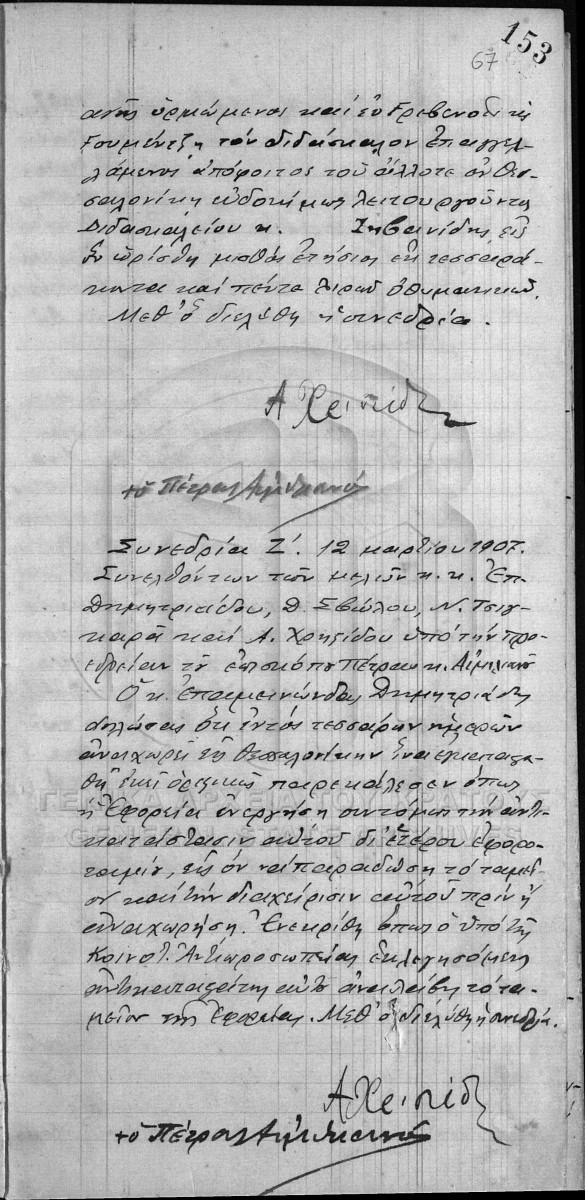 153
67
αὐτῆς ὁρμώμενος καὶ ἐν Γρεβενοῖς τῆς
Γουμέντζης τὸν διδάσκαλον ἐπαγγελ-
λόμενος ἀπόφοιτος τοῦ ἄλλοτε ἐν Θεσ-
σαλονίκῃ εὐδοκίμως λειτουργοῦντος
Διδασκαλείου κ. εἰς
ὃν ὡρίσθη μισθὸς ἐτήσιος ἐκ τεσσαρά-
κοντα καὶ πέντε λιρῶν ὀθωμανικῶν.
Μεθ' ὃ διελύθη ἡ συνεδρία.
Α
+ὁ Πέτρας Αἰμιλιανός
Συνεδρία Ζ'. 12 Μαρτίου 1907.
Συνελθόντων τῶν μελῶν κ. κ. Ἐπ.
Δημητριάδου, Δ. Σβώλου, Ν. Τσιγ-
καρᾶ καὶ Α. Χρηστίδου ὑπὸ τὴν προ-
εδρείαν τοῦ ἐπισκόπου Πέτρας κ. Αἰμιλιανοῦ
Ὁ κ. Ἐπαμεινώνδας Δημητριάδης
δηλώσας ὅτι ἐντὸς τεσσάρων ἡμερῶν
ἀναχωρεῖ εἰς Θεσσαλονίκην ἵνα ἐγκαταστα-
θῇ ἐκεῖ ὁριστικῶς παρεκάλεσεν ὅπως
ἡ Ἐφορεία ἐνεργήσῃ συντόμως τὴν ἀντι-
κατάστασιν αὐτοῦ δι' ἑτέρου ἐφορο-
ταμίου, εἰς ὃν νὰ παραδώσῃ τὸ ταμεῖ-
ον καὶ τὴν διαχείρισιν αὐτοῦ πρὶν ἢ
ἀναχωρήσῃ. Ἐνεκρίθη ὅπως ὁ ὑπὸ τῆς
Κοινοτ. Ἀντιπροσωπείας ἐκλεγησόμενος
ἀντικαταστάτης αὐτοῦ ἀναλάβῃ τὸ τα-
μεῖον τῆς Ἐφορείας. Μεθ' ὃ διελύθη ἡ συνεδρία.
Α
+ὁ Πέτρας Αἰμιλιανός
ΓΕΝΙΚΑ ΑΡΧΕΙΑ ΤΟΥ ΚΡΑΤΟΥΣ
GENERAL STATE ARCHIVES